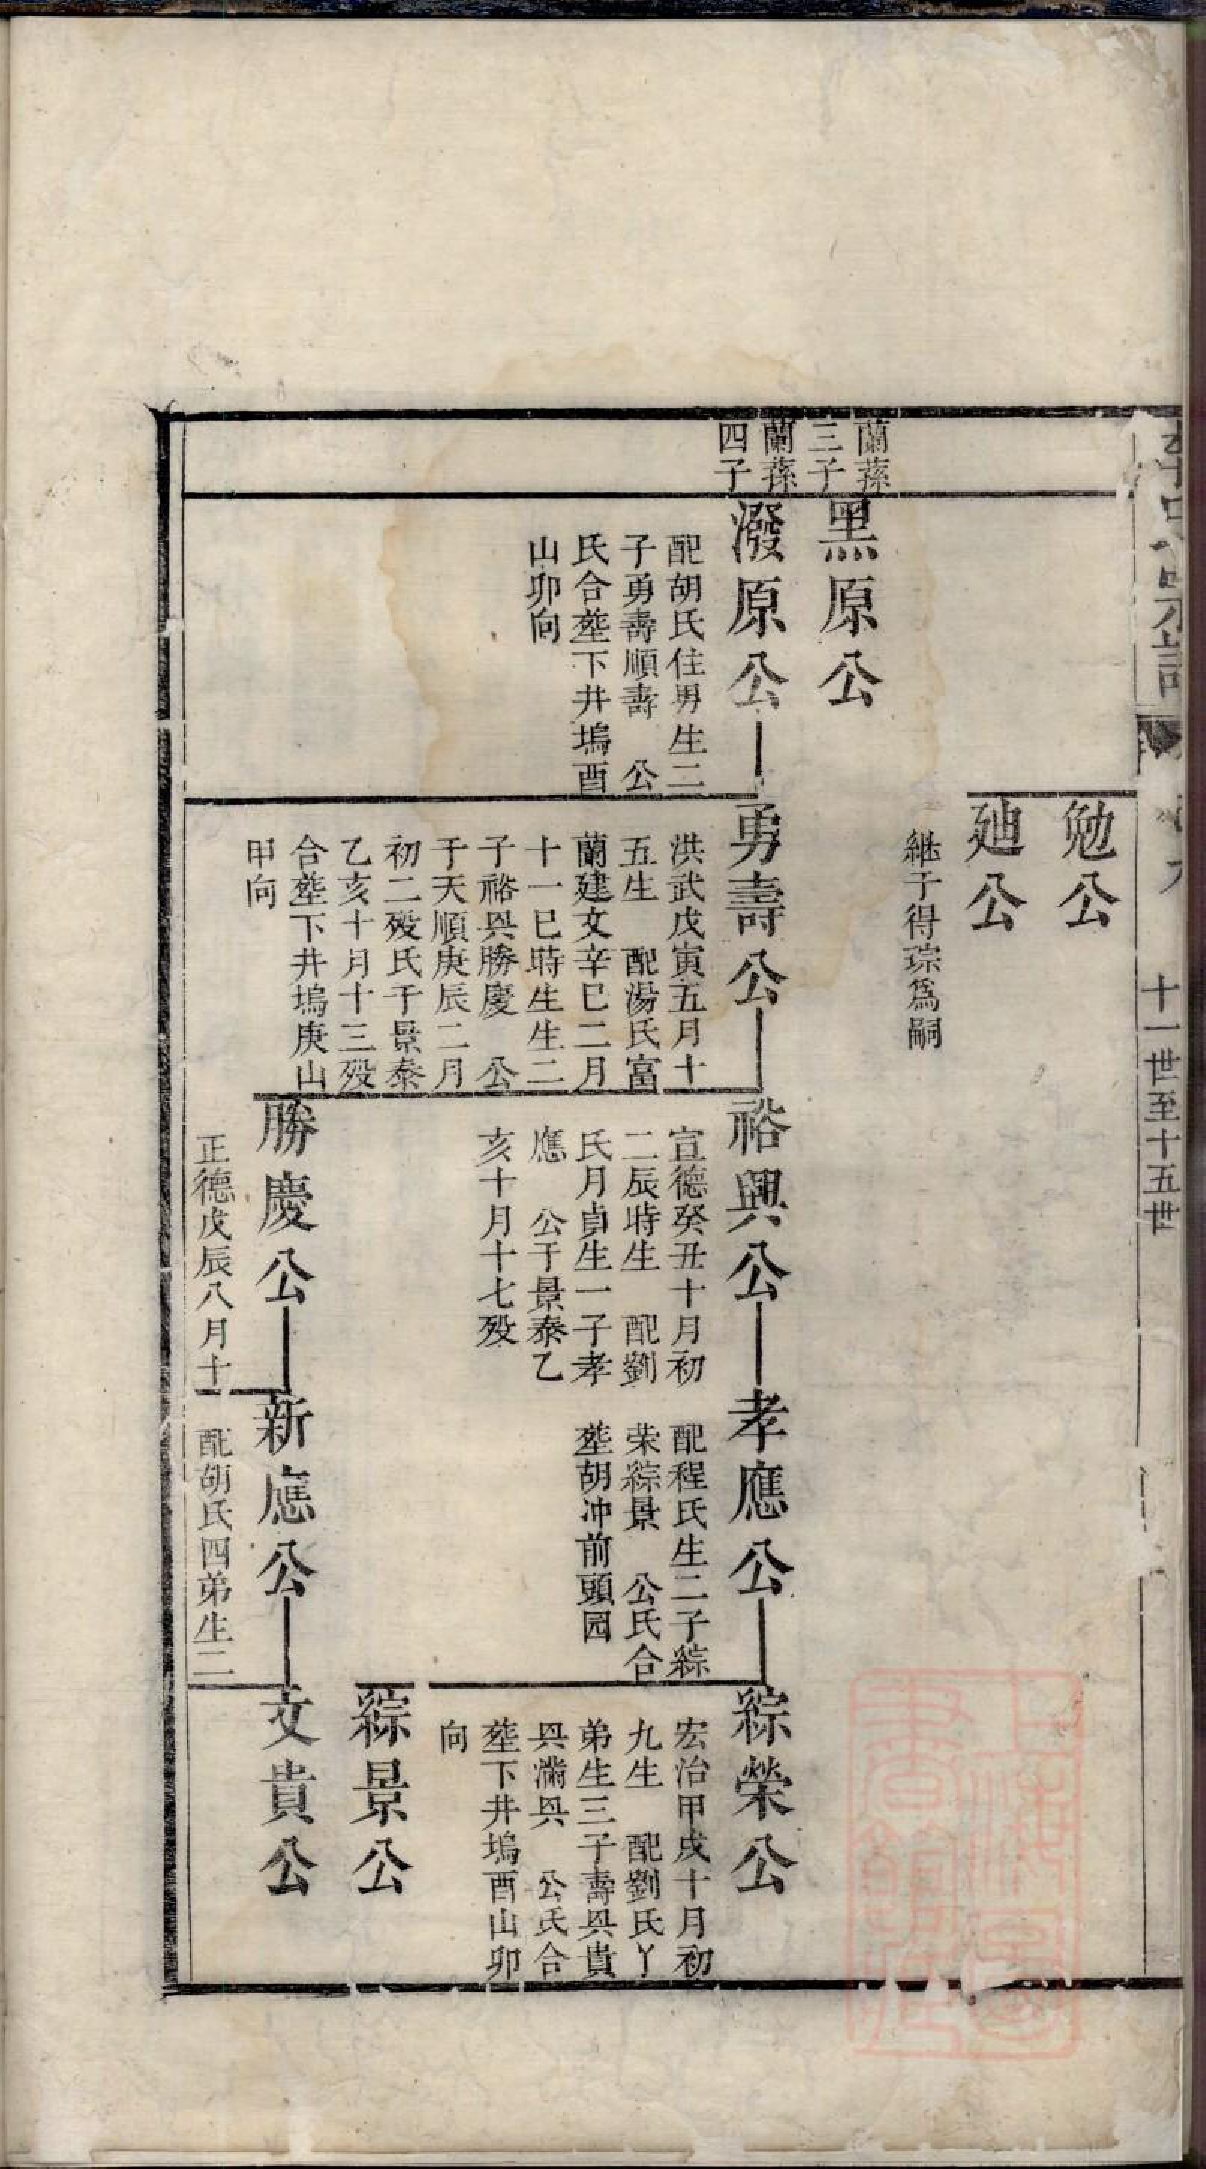 十一世至十五世
勉公
廸公
継子得琮爲嗣
蘭蓀
三子
黑原公
蘭蓀
四子
潑原公
配胡氏住男生二
子勇壽順壽 公
氏合塟下井塢酉
山卯向
勇壽公
洪武戊寅五月十
五生 配湯氏富
蘭建文辛巳二月
十一巳時生生二
子裕㒷勝慶 公
于天順庚辰二月
初二殁氏于景泰
乙亥十月十三殁
合塟下井塢庚山
甲向
裕興公
宣德癸丑十月初
二辰時生 配劉
氏月貞生一子孝
應 公于景泰乙
亥十月十七殁
孝應公
配程氏生二子綜
荣綜景 公氏合
塟胡冲前頭园
綜榮公
宏治甲戌十月初
九生 配劉氏丫
弟生三子壽㒷貴
㒷滿㒷 公氏合
塟下井塢酉山卯
向
綜景公
勝慶公
正德戊辰八月十
新應公
配胡氏四弟生二
文貴公